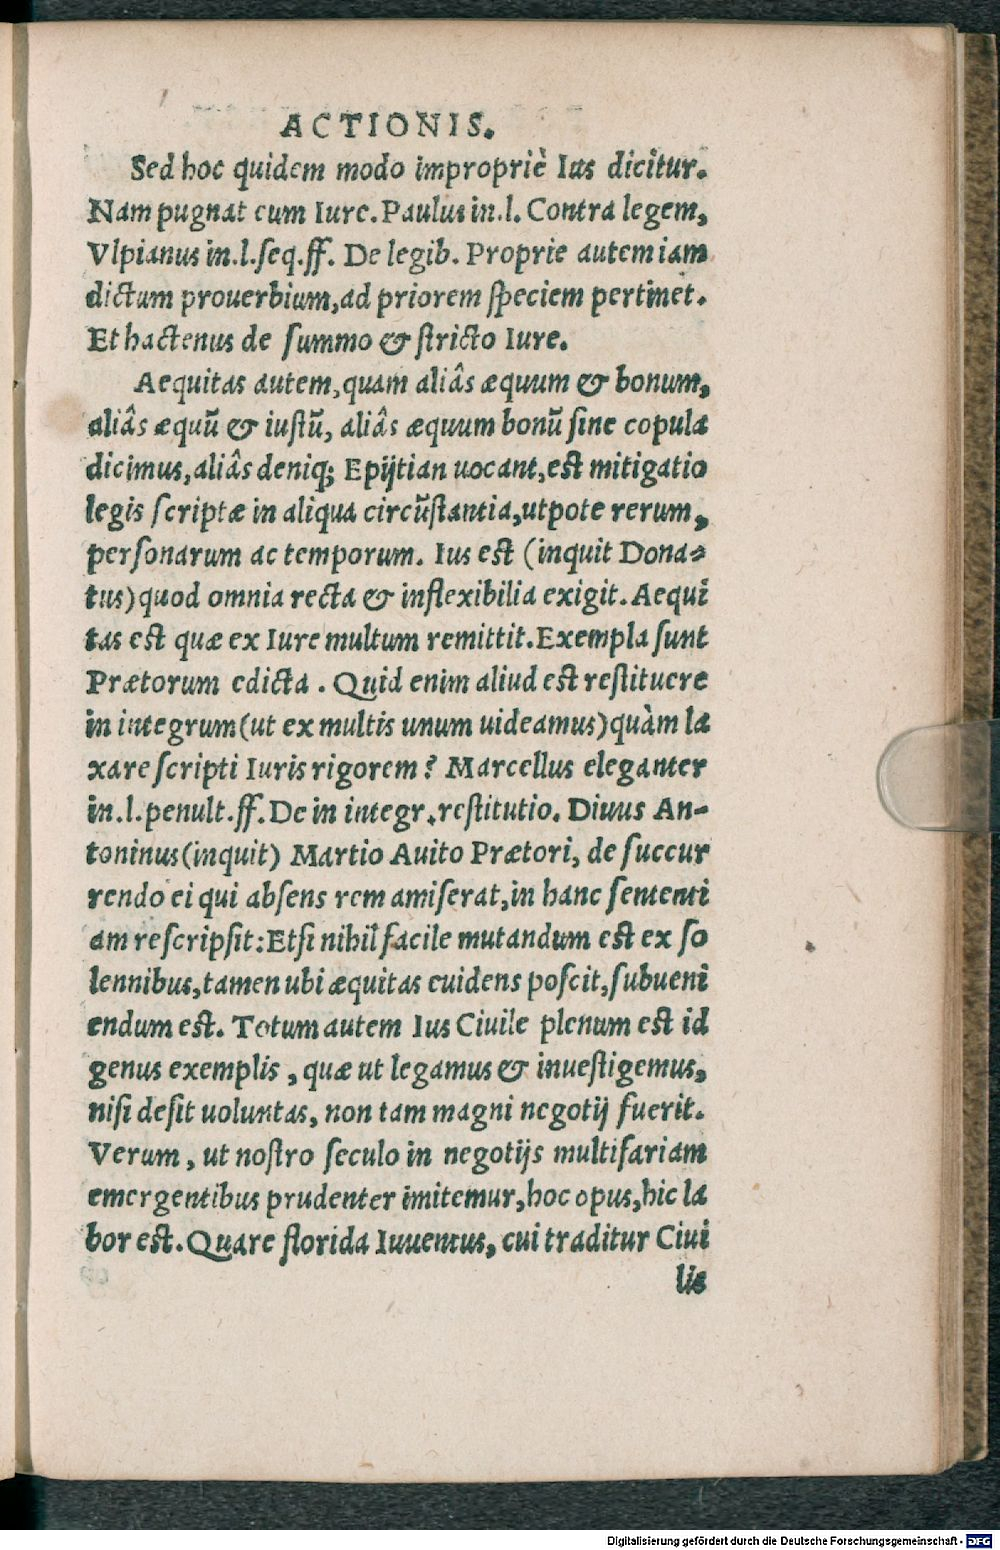 ACTIONIS.
Sed hoc quidem modo impropriè Ius dicitur.
Nam pugnat cum Iure. Paulus in.l. Contra legem,
Vlpianus in.l.seq.ff. De legib. Proprie autem iam
dictum prouerbium, ad priorem speciem pertinet.
Et hactenus de summo & stricto Iure.
Aequitas autem, quam aliâs æquum & bonum,
aliâs æquũ & iustũ, aliâs æquum bonũ sine copula
dicimus, aliâs deniq; Epijtian uocant, est mitigatio
legis scriptæ in aliqua circũstantia, utpote rerum,
personarum ac temporum. Ius est (inquit Dona-
tus) quod omnia recta & inflexibilia exigit. Aequi
tas est quæ ex Iure multum remittit. Exempla sunt
Prætorum edicta. Quid enim aliud est restituere
in integrum (ut ex multis unum uideamus) quàm la
xare scripti Iuris rigorem? Marcellus eleganter
in.l.penult.ff. De in integr. restitutio. Diuus An-
toninus (inquit) Martio Auito Prætori, de succur
rendo ei qui absens rem amiserat, in hanc sententi
am rescripsit: Etsi nihil facile mutandum est ex so
lennibus, tamen ubi æquitas euidens poscit, subueni
endum est. Totum autem Ius Ciuile plenum est id
genus exemplis, quæ ut legamus & inuestigemus,
nisi desit uoluntas, non tam magni negotij fuerit.
Verum, ut nostro seculo in negotijs multifariam
emergentibus prudenter imitemur, hoc opus, hic la
bor est. Quare florida Iuuentus, cui traditur Ciui
lis
Digitalisierung gefördert durch die Deutsche Forschungsgemeinschaft - DFG